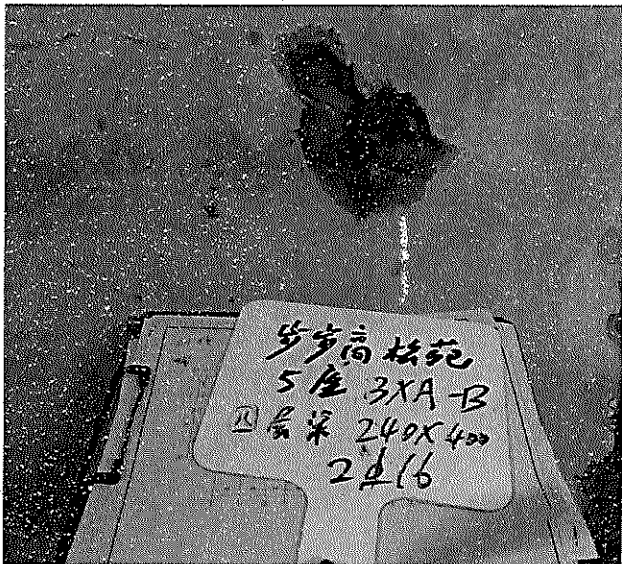 步步高松苑
5座 3XA-B
四层梁 240X400
2φ16